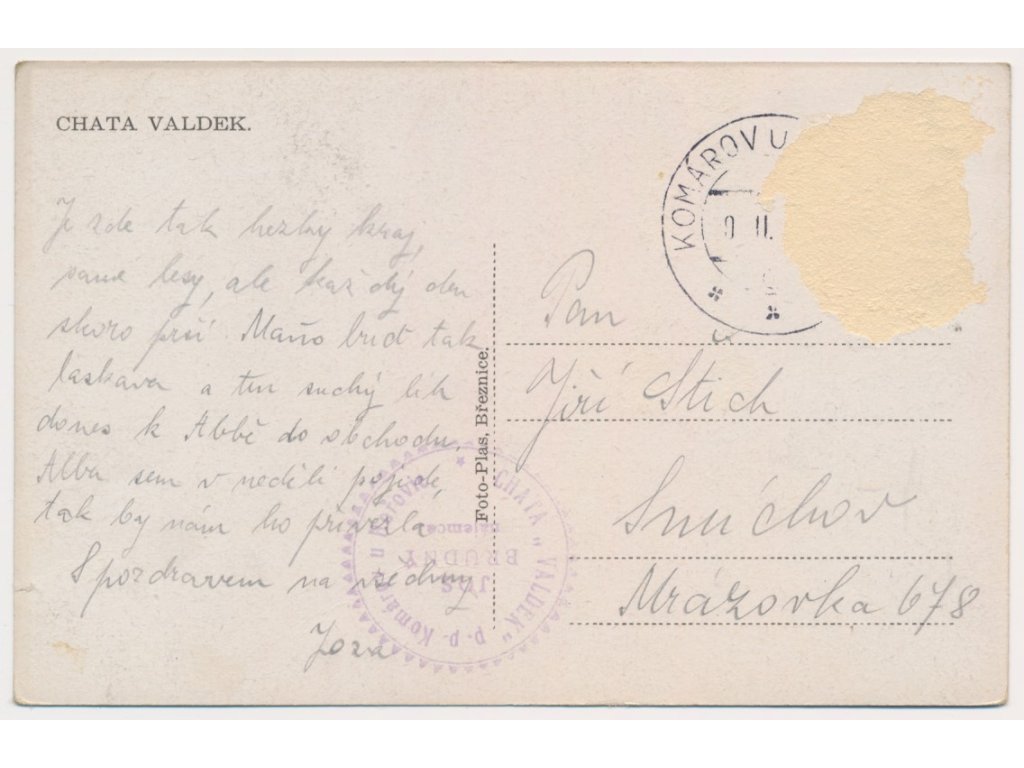 CHATA VALDEK.
KOMÁROV U
9 II.
Je zde tak hezký kraj,
samé lesy, ale každý den
skoro prší. Máňo buď tak
laskava a ten suchý líh
dones k Abbě do obchodu,
Abba sem v neděli pojede,
tak by nám ho přivezla.
S pozdravem na všechny
Joza
Foto-Plas, Březnice.
Pan
Jiří Stich
Smíchov
Mrázovka 678
CHATA „VALDEK" p. p. Komárov u Hořovic
JOS.
BRUDNÝ
nájemce